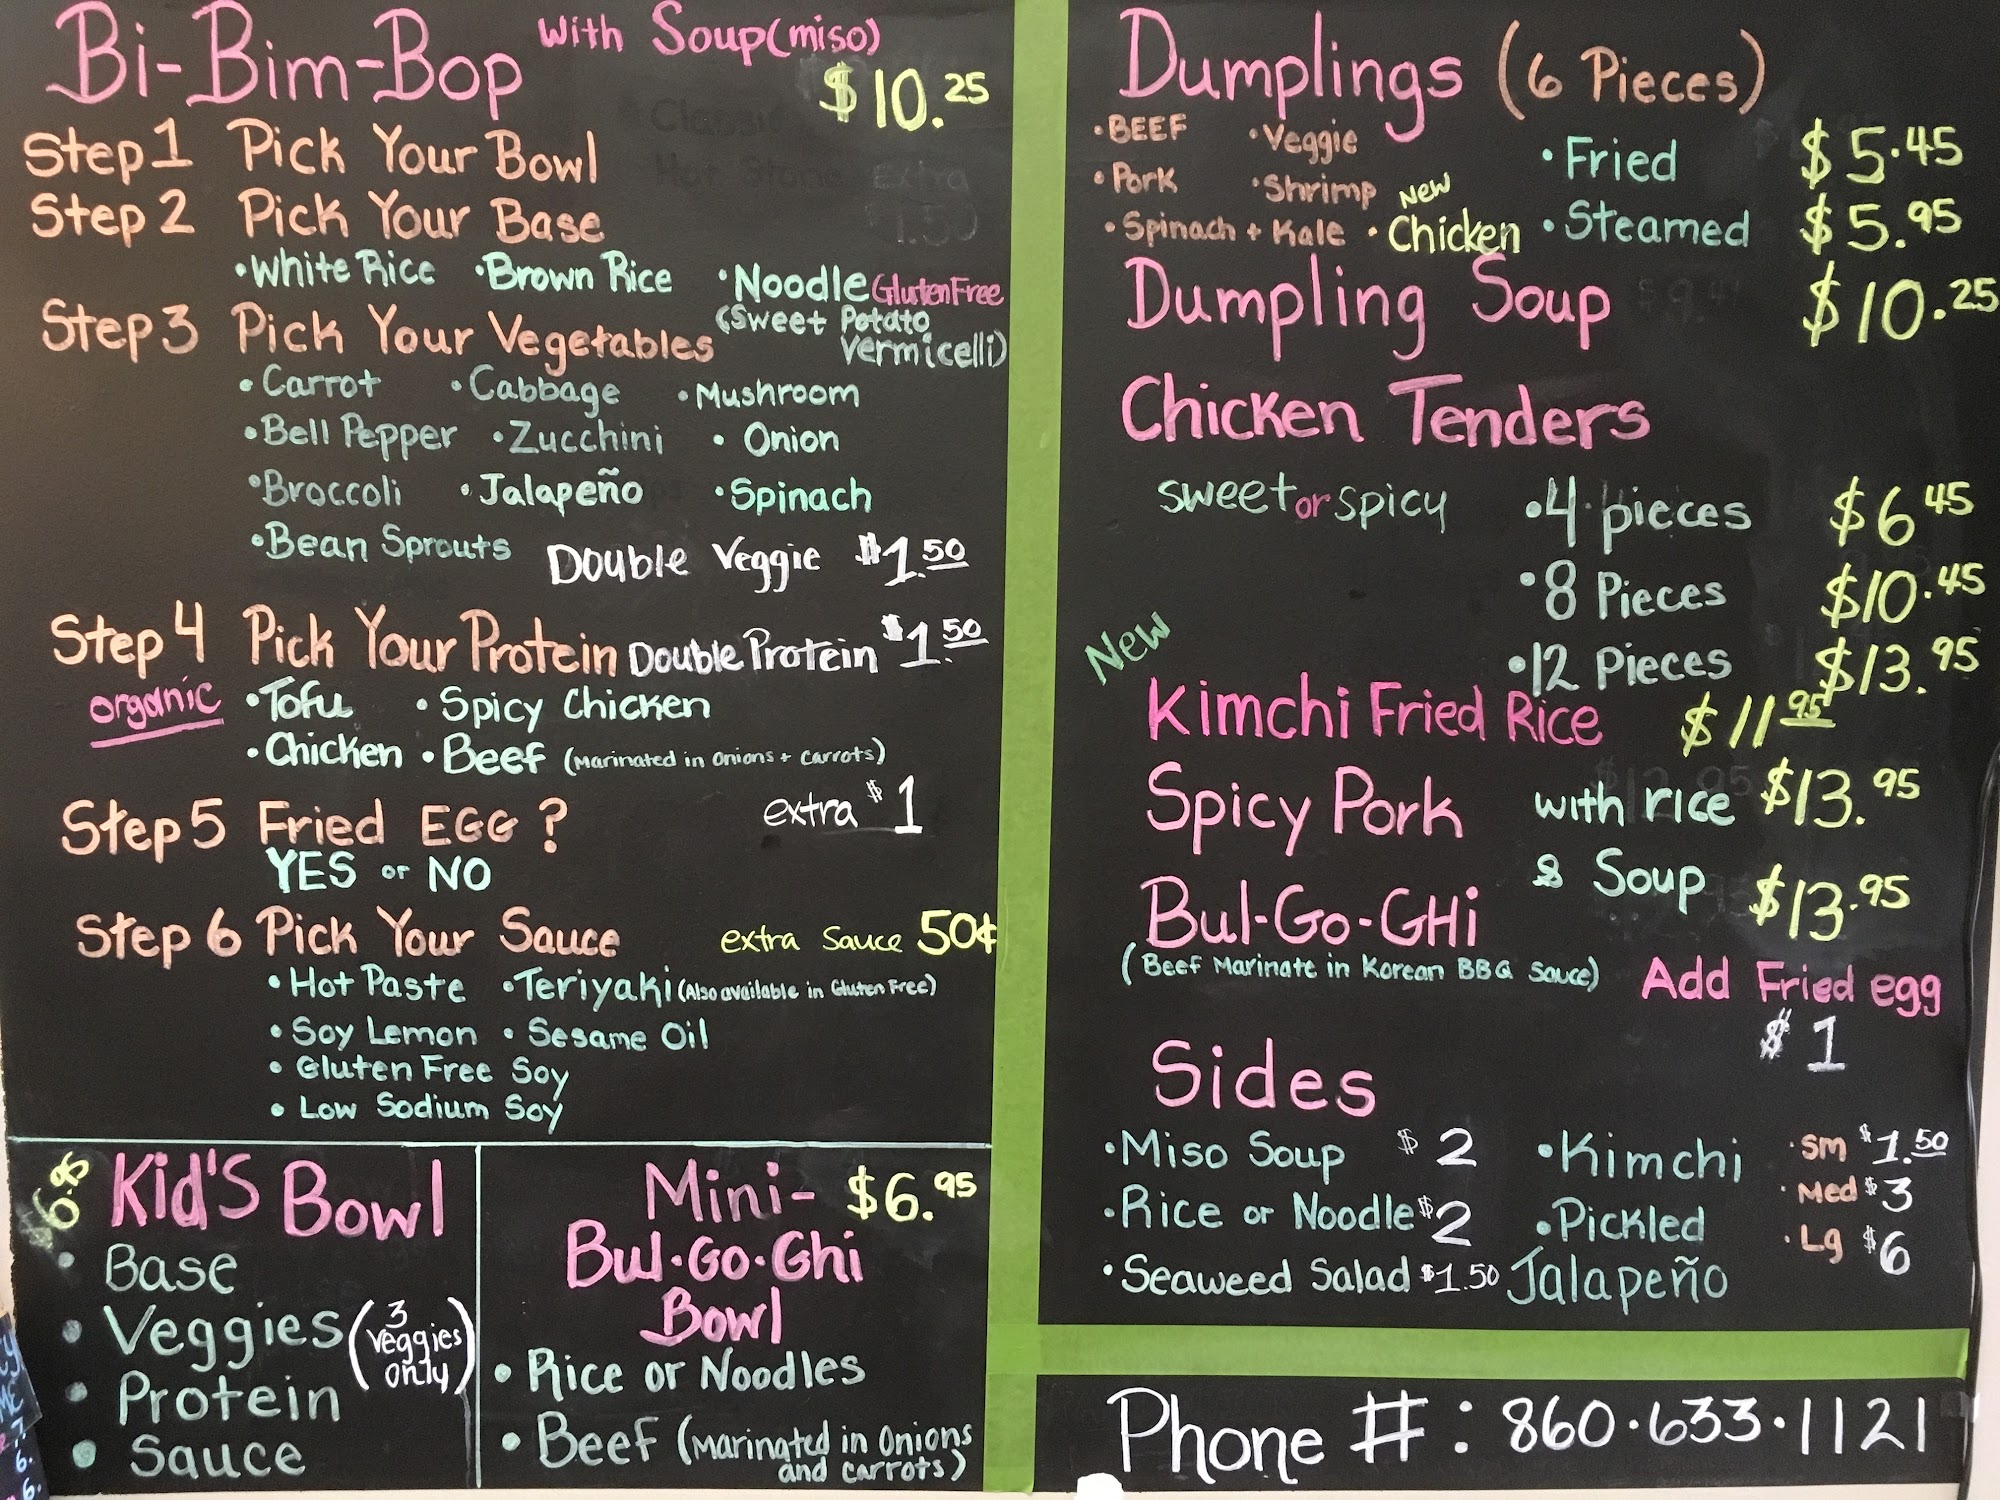 Bi-Bim-Bop with Soup(miso)
$10.25
Step 1 Pick Your Bowl
Step 2 Pick Your Base
•White Rice •Brown Rice •Noodle Gluten Free
(Sweet Potato
Vermicelli)
Step 3 Pick Your Vegetables
•Carrot •Cabbage •Mushroom
•Bell Pepper •Zucchini •Onion
•Broccoli •Jalapeño •Spinach
•Bean Sprouts Double Veggie $1.50
Step 4 Pick Your Protein Double Protein $1.50
organic •Tofu •Spicy Chicken
•Chicken •Beef (Marinated in Onions + Carrots)
Step 5 Fried EGG? extra $1
YES or NO
Step 6 Pick Your Sauce extra Sauce 50¢
•Hot Paste •Teriyaki (Also available in Gluten Free)
•Soy Lemon •Sesame Oil
•Gluten Free Soy
•Low Sodium Soy
6.95 Kid'S Bowl
•Base
•Veggies (3 Veggies only)
•Protein
•Sauce
Mini- $6.95
Bul-Go-Ghi
Bowl
•Rice or Noodles
•Beef (Marinated in Onions
and carrots)
Dumplings (6 Pieces)
•BEEF •Veggie •Fried $5.45
•Pork •Shrimp New
•Spinach + Kale •Chicken •Steamed $5.95
Dumpling Soup $10.25
Chicken Tenders
sweet or spicy •4 pieces $6.45
•8 Pieces $10.45
•12 Pieces $13.95
New
Kimchi Fried Rice $11.95
Spicy Pork with rice $13.95
& Soup
Bul-Go-GHi $13.95
(Beef Marinate in Korean BBQ Sauce)
Add Fried egg
$1
Sides
•Miso Soup $2 •Kimchi •Sm $1.50
•Rice or Noodle $2 •Pickled •Med $3
•Seaweed Salad $1.50 Jalapeño •Lg $6
Phone #: 860.633.1121